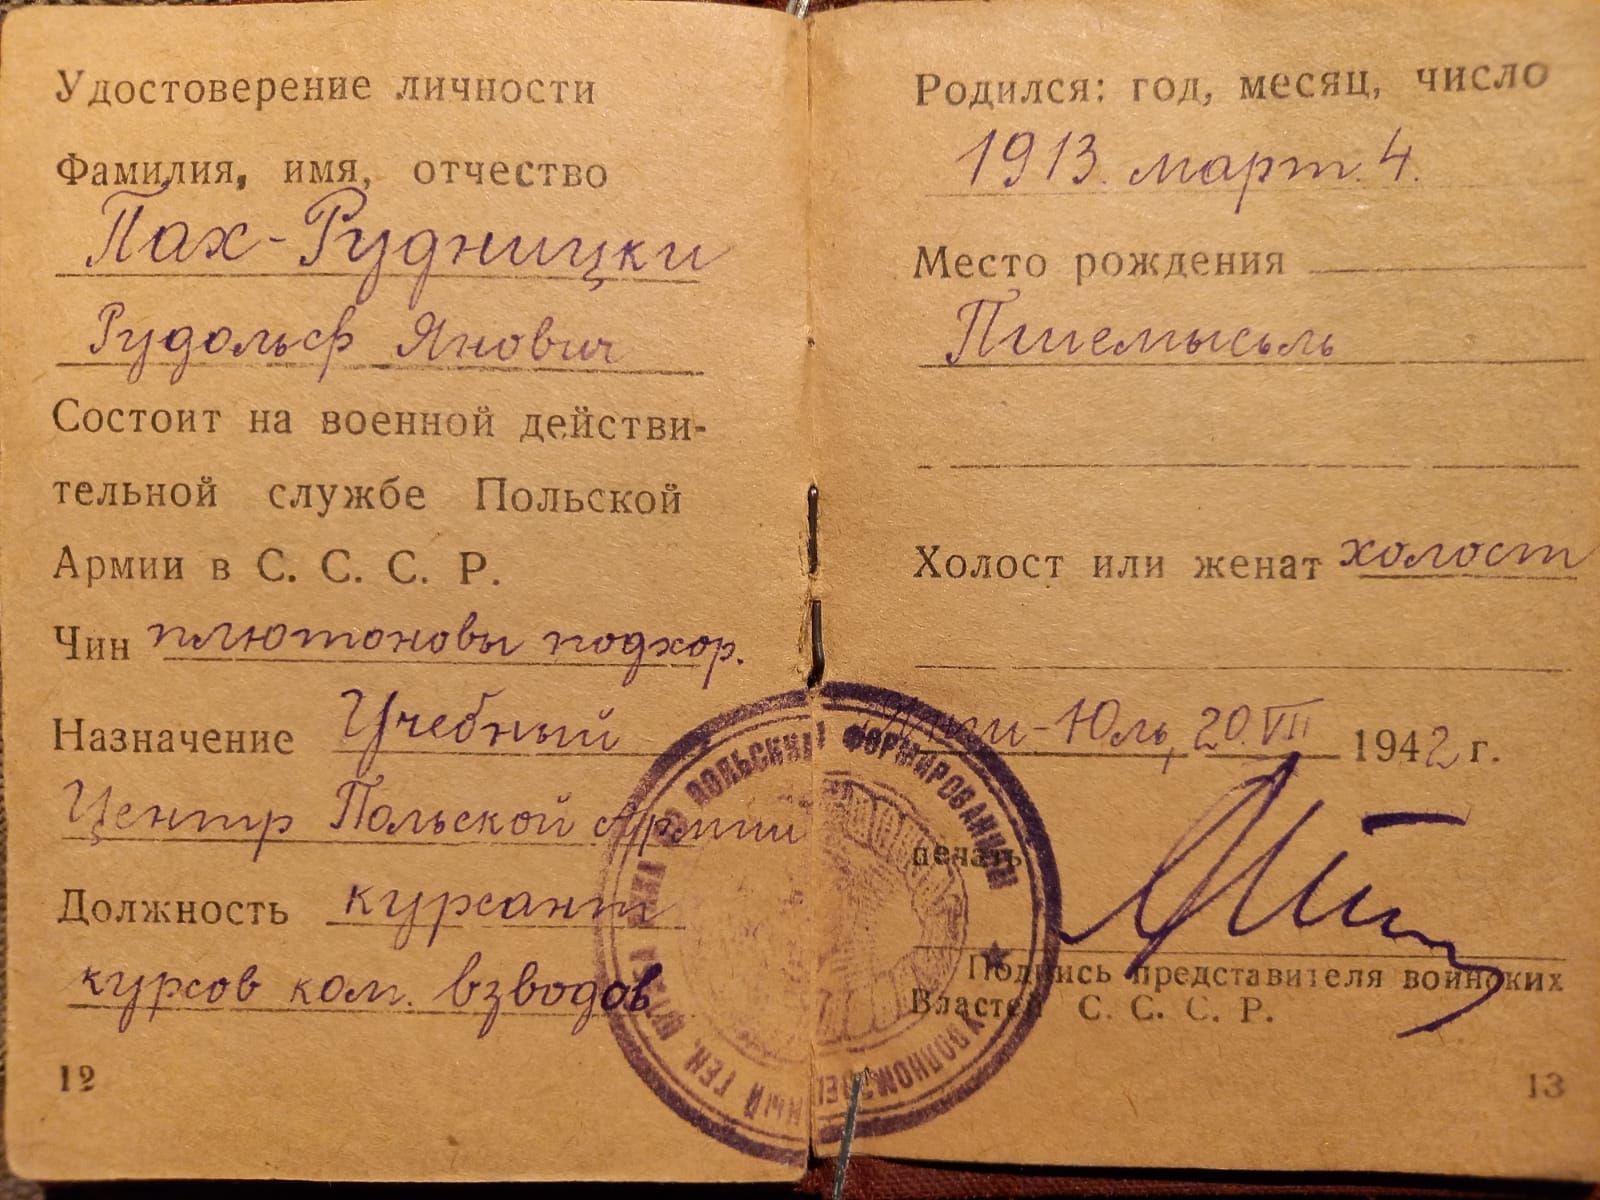 Удостоверение личности
Фамилия, имя, отчество
Пах-Рудницки
Рудольф Янович
Состоит на военной действи-
тельной службе Польской
Армии в С. С. С. Р.
Чин плютоновы подхор.
Назначение Учебный
Центр Польской Армии
Должность курсант
курсов ком. взводов
12
Родился: год, месяц, число
1913. март. 4.
Место рождения
Пшемысьль
Холост или женат холост
Янги-Юль, 20.VII 1942 г.
печать
Подпись представителя воинских
Властей С. С. С. Р.
13
ПО ПОЛЬСКИМ ФОРМИРОВАНИЯМ
УПОЛНОМ
ГЕН. ШТАБА